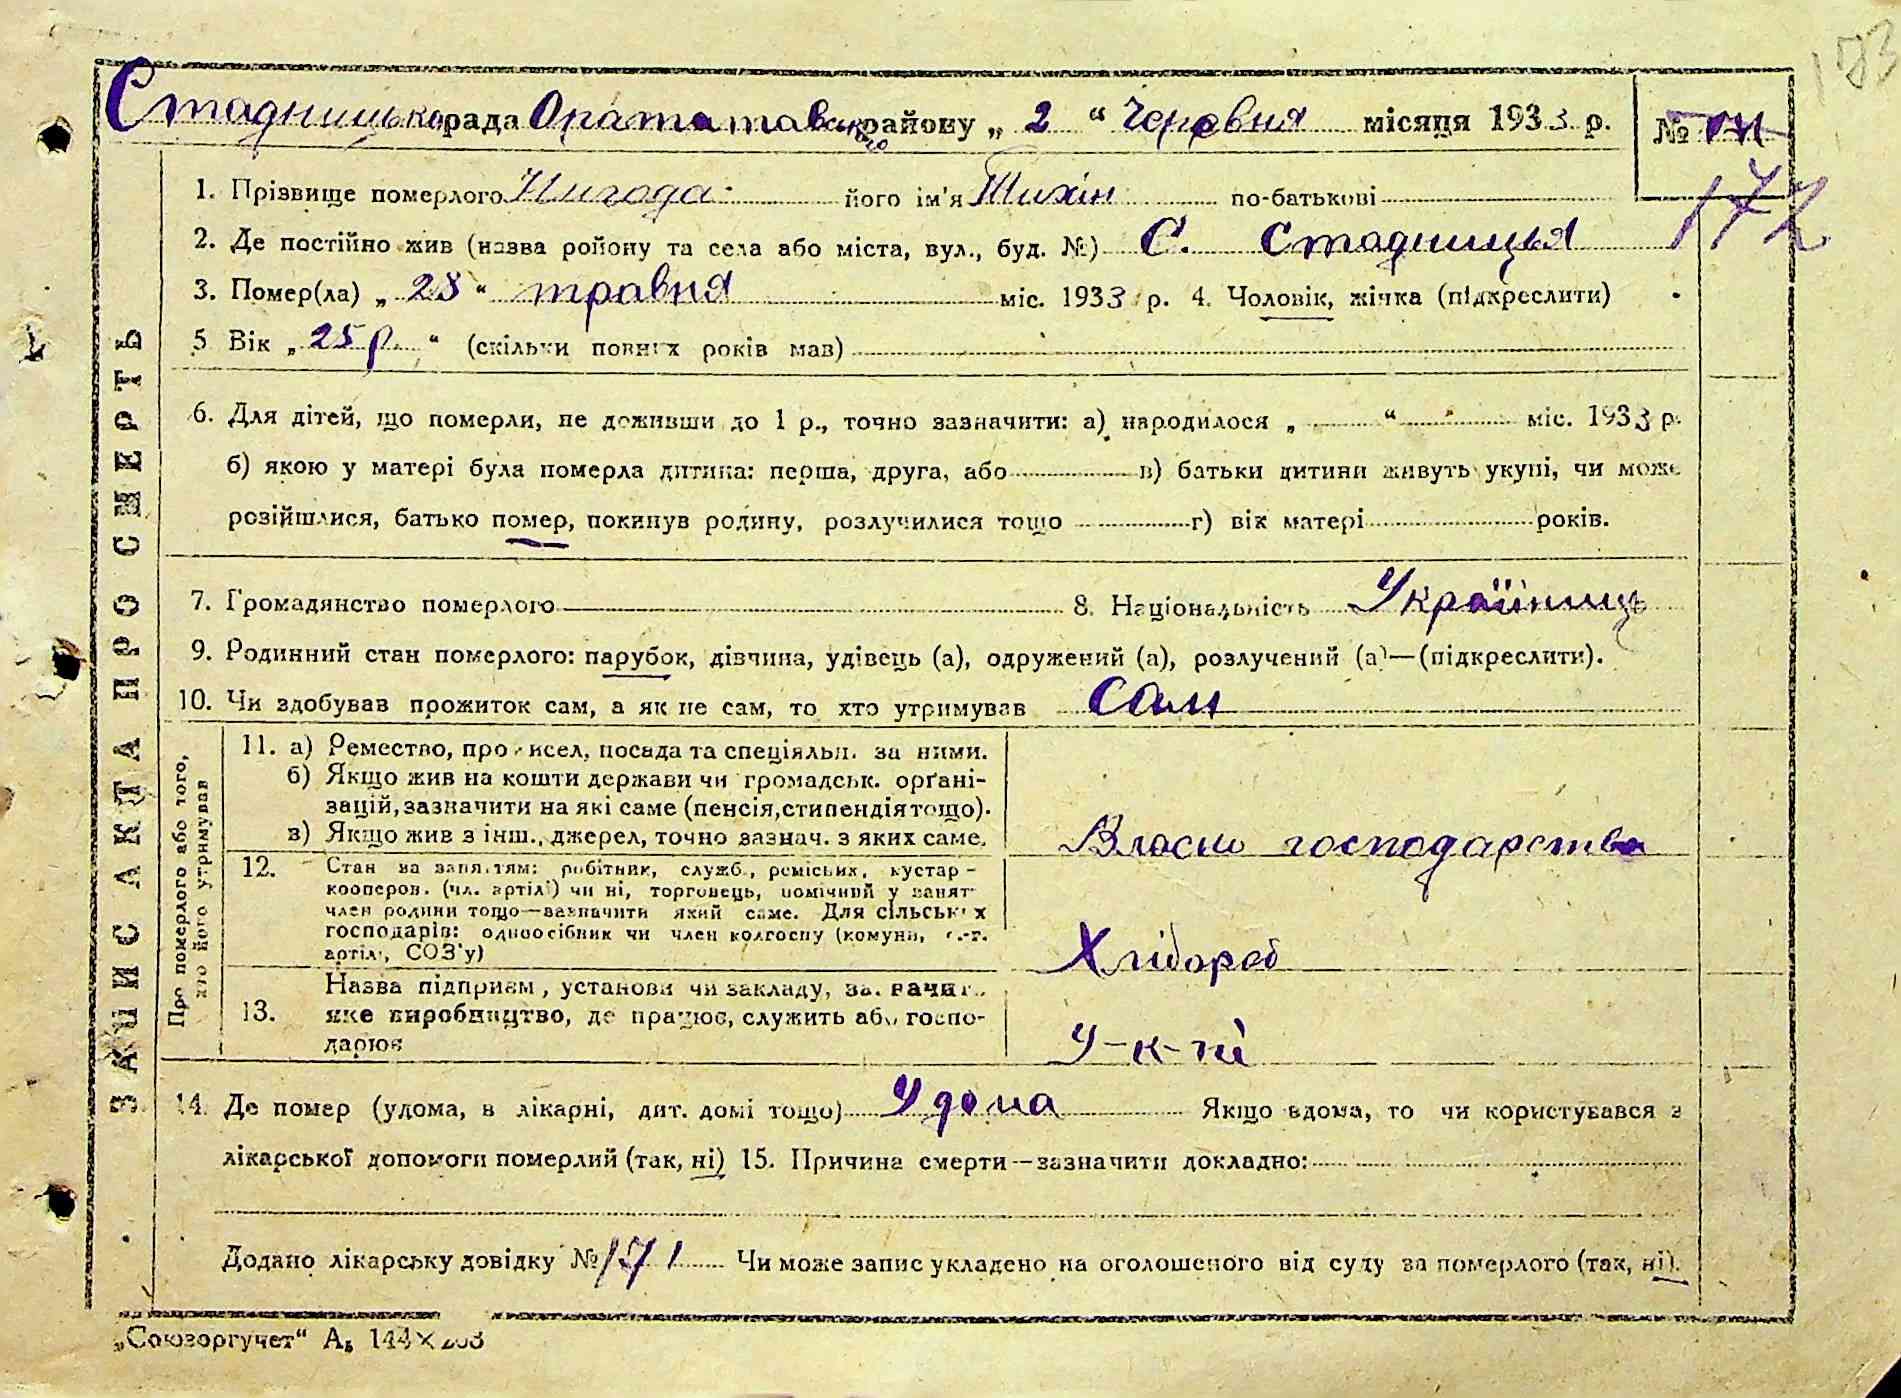 183
Стадницька рада Орататавського району „ 2 “ Червня місяця 1933 р. №
172
1. Прізвище померлого Нигода його ім'я Тихін по-батькові
2. Де постійно жив (назва ройону та села або міста, вул., буд. №) С. Стадниця
3. Помер(ла) „ 28 “ травня міс. 1933 р. 4. Чоловік, жінка (підкреслити)
5 Вік „ 25 р. “ (скільки повних років мав)
6. Для дітей, що померли, не доживши до 1 р., точно зазначити: а) народилося „ “ міс. 1933 р.
б) якою у матері була померла дитина: перша, друга, або в) батьки дитини живуть укупі, чи може
розійшлися, батько помер, покинув родину, розлучилися тощо г) вік матері років.
7. Громадянство померлого 8. Національність Українць
9. Родинний стан померлого: парубок, дівчина, удівець (а), одружений (а), розлучений (а)—(підкреслити).
10. Чи здобував прожиток сам, а як не сам, то хто утримував Сам
ЗАПИС АКТА ПРО СМЕРТЬ
Про померлого або того, хто його утримував
11. а) Ремество, промисел, посада та спеціяльн. за ними.
б) Якщо жив на кошти держави чи громадськ. орґані-
зацій, зазначити на які саме (пенсія, стипендія тощо).
в) Якщо жив з інш., джерел, точно зазнач. з яких саме.
Власно господарство
12. Стан за заняттям: робітник, служб., ремісник, кустар-
кооперов. (чл. артілі) чи ні, торговець, помічний у занят
член родини тощо—зазначити який саме. Для сільських
господарів: одноосібник чи член колгоспу (комуни, с.-г.
артілі, СОЗ'у)
Хлібороб
13. Назва підприєм, установи чи закладу, зазначит.
яке виробництво, де працює, служить або госпо-
дарює
У-к-ні
14. Де помер (удома, в лікарні, дит. домі тощо) Удома Якщо вдома, то чи користувався з
лікарської допомоги померлий (так, ні) 15. Причина смерти—зазначити докладно:
Додано лікарську довідку № 171 Чи може запис укладено на оголошеного від суду за померлого (так, ні).
„Союзоргучет“ А₅ 144×203